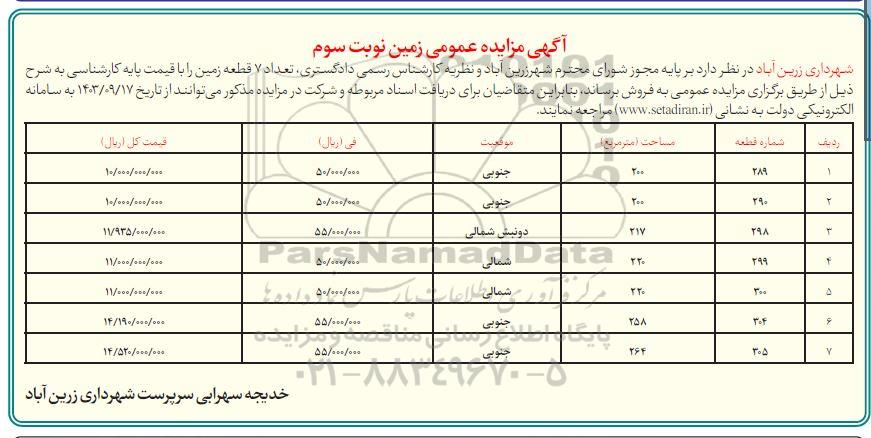 آگهی مزایده عمومی زمین نوبت سوم
شهرداری زرین آباد در نظر دارد بر پایه مجوز شورای محترم شهر زرین آباد و نظریه کارشناس رسمی دادگستری، تعداد ۷ قطعه زمین را با قیمت پایه کارشناسی به شرح
ذیل از طریق برگزاری مزایده عمومی به فروش برساند، بنابراین متقاضیان برای دریافت اسناد مربوطه و شرکت در مزایده مذکور می‌توانند از تاریخ ۱۴۰۳/۰۹/۱۷ به سامانه
الکترونیکی دولت به نشانی (www.setadiran.ir) مراجعه نمایند.
ردیف شماره قطعه مساحت (مترمربع) موقعیت فی (ریال) قیمت کل (ریال)
۱ ۲۸۹ ۲۰۰ جنوبی ۵۰/۰۰۰/۰۰۰ ۱۰/۰۰۰/۰۰۰/۰۰۰
۲ ۲۹۰ ۲۰۰ جنوبی ۵۰/۰۰۰/۰۰۰ ۱۰/۰۰۰/۰۰۰/۰۰۰
۳ ۲۹۸ ۲۱۷ دونبش شمالی ۵۵/۰۰۰/۰۰۰ ۱۱/۹۳۵/۰۰۰/۰۰۰
۴ ۲۹۹ ۲۲۰ شمالی ۵۰/۰۰۰/۰۰۰ ۱۱/۰۰۰/۰۰۰/۰۰۰
۵ ۳۰۰ ۲۲۰ شمالی ۵۰/۰۰۰/۰۰۰ ۱۱/۰۰۰/۰۰۰/۰۰۰
۶ ۳۰۴ ۲۵۸ جنوبی ۵۵/۰۰۰/۰۰۰ ۱۴/۱۹۰/۰۰۰/۰۰۰
۷ ۳۰۵ ۲۶۴ جنوبی ۵۵/۰۰۰/۰۰۰ ۱۴/۵۲۰/۰۰۰/۰۰۰
ParsNamadData
مرکز فرآوری اطلاعات پارس نماد داده ها
پایگاه اطلاع رسانی مناقصه و مزایده
۰۲۱-۸۸۳۴۹۶۷۰-۵
خدیجه سهرابی سرپرست شهرداری زرین آباد